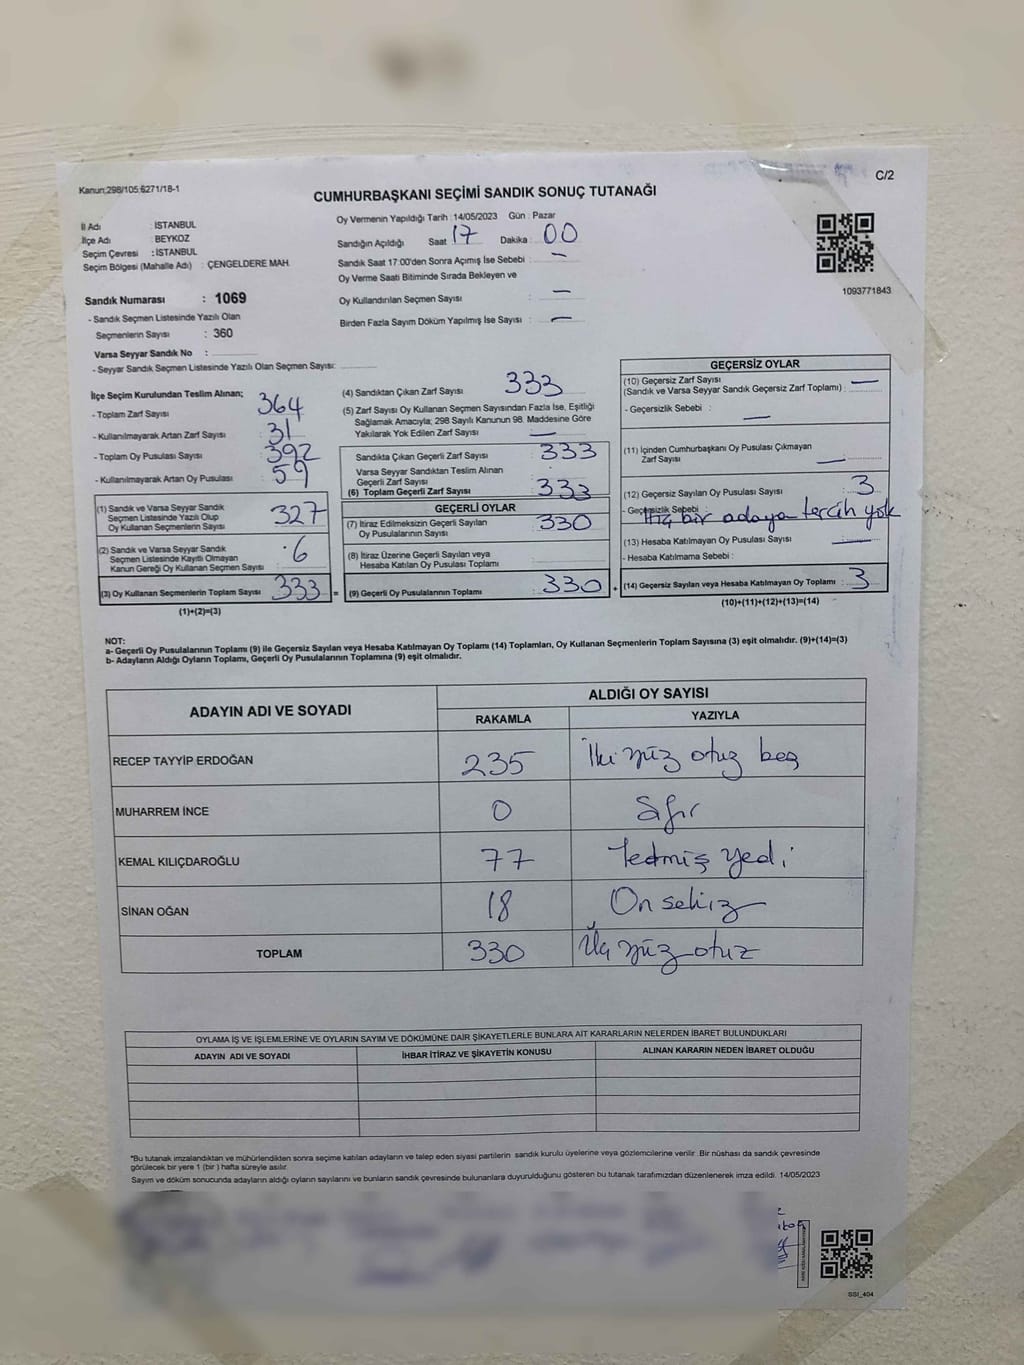 Kanun;298/105;6271/18-1
C/2
CUMHURBAŞKANI SEÇİMİ SANDIK SONUÇ TUTANAĞI
İl Adı : İSTANBUL
İlçe Adı : BEYKOZ
Seçim Çevresi : İSTANBUL
Seçim Bölgesi (Mahalle Adı) : ÇENGELDERE MAH.
Sandık Numarası : 1069
- Sandık Seçmen Listesinde Yazılı Olan
Seçmenlerin Sayısı : 360
Varsa Seyyar Sandık No :
- Seyyar Sandık Seçmen Listesinde Yazılı Olan Seçmen Sayısı:
Oy Vermenin Yapıldığı Tarih : 14/05/2023 Gün : Pazar
Sandığın Açıldığı Saat 17 Dakika 00
Sandık Saat 17:00'den Sonra Açımış İse Sebebi : —
Oy Verme Saati Bitiminde Sırada Bekleyen ve
Oy Kullandırılan Seçmen Sayısı : —
Birden Fazla Sayım Döküm Yapılmış İse Sayısı : —
1093771843
İlçe Seçim Kurulundan Teslim Alınan;
- Toplam Zarf Sayısı : 364
- Kullanılmayarak Artan Zarf Sayısı : 31
- Toplam Oy Pusulası Sayısı : 392
- Kullanılmayarak Artan Oy Pusulası : 59
(1) Sandık ve Varsa Seyyar Sandık
Seçmen Listesinde Yazılı Olup
Oy Kullanan Seçmenlerin Sayısı : 327
(2) Sandık ve Varsa Seyyar Sandık
Seçmen Listesinde Kayıtlı Olmayan
Kanun Gereği Oy Kullanan Seçmen Sayısı : 6
(3) Oy Kullanan Seçmenlerin Toplam Sayısı : 333
(1)+(2)=(3)
(4) Sandıktan Çıkan Zarf Sayısı : 333
(5) Zarf Sayısı Oy Kullanan Seçmen Sayısından Fazla İse, Eşitliği
Sağlamak Amacıyla; 298 Sayılı Kanunun 98. Maddesine Göre
Yakılarak Yok Edilen Zarf Sayısı : —
Sandıkta Çıkan Geçerli Zarf Sayısı : 333
Varsa Seyyar Sandıktan Teslim Alınan
Geçerli Zarf Sayısı :
(6) Toplam Geçerli Zarf Sayısı : 333
GEÇERLİ OYLAR
(7) İtiraz Edilmeksizin Geçerli Sayılan
Oy Pusulalarının Sayısı : 330
(8) İtiraz Üzerine Geçerli Sayılan veya
Hesaba Katılan Oy Pusulası Toplamı :
(9) Geçerli Oy Pusulalarının Toplamı : 330
GEÇERSİZ OYLAR
(10) Geçersiz Zarf Sayısı : —
(Sandık ve Varsa Seyyar Sandık Geçersiz Zarf Toplamı)
- Geçersizlik Sebebi : —
(11) İçinden Cumhurbaşkanı Oy Pusulası Çıkmayan
Zarf Sayısı : —
(12) Geçersiz Sayılan Oy Pusulası Sayısı : 3
- Geçersizlik Sebebi : Hiç bir adaya tercih yok
(13) Hesaba Katılmayan Oy Pusulası Sayısı : —
- Hesaba Katılmama Sebebi :
(14) Geçersiz Sayılan veya Hesaba Katılmayan Oy Toplamı : 3
(10)+(11)+(12)+(13)=(14)
NOT:
a- Geçerli Oy Pusulalarının Toplamı (9) ile Geçersiz Sayılan veya Hesaba Katılmayan Oy Toplamı (14) Toplamları, Oy Kullanan Seçmenlerin Toplam Sayısına (3) eşit olmalıdır. (9)+(14)=(3)
b- Adayların Aldığı Oyların Toplamı, Geçerli Oy Pusulalarının Toplamına (9) eşit olmalıdır.
ADAYIN ADI VE SOYADI
ALDIĞI OY SAYISI
RAKAMLA YAZIYLA
RECEP TAYYİP ERDOĞAN 235 İki yüz otuz beş
MUHARREM İNCE 0 Sıfır
KEMAL KILIÇDAROĞLU 77 Yedmiş yedi
SİNAN OĞAN 18 On sekiz
TOPLAM 330 Üç yüz otuz
OYLAMA İŞ VE İŞLEMLERİNE VE OYLARIN SAYIM VE DÖKÜMÜNE DAİR ŞİKAYETLERLE BUNLARA AİT KARARLARIN NELERDEN İBARET BULUNDUKLARI
ADAYIN ADI VE SOYADI İHBAR İTİRAZ VE ŞİKAYETİN KONUSU ALINAN KARARIN NEDEN İBARET OLDUĞU
*Bu tutanak imzalandıktan ve mühürlendikten sonra seçime katılan adayların ve talep eden siyasi partilerin sandık kurulu üyelerine veya gözlemcilerine verilir. Bir nüshası da sandık çevresinde
görülecek bir yere 1 (bir) hafta süreyle asılır.
Sayım ve döküm sonucunda adayların aldığı oyların sayılarını ve bunların sandık çevresinde bulunanlara duyurulduğunu gösteren bu tutanak tarafımızdan düzenlenerek imza edildi. 14/05/2023
SSI_404